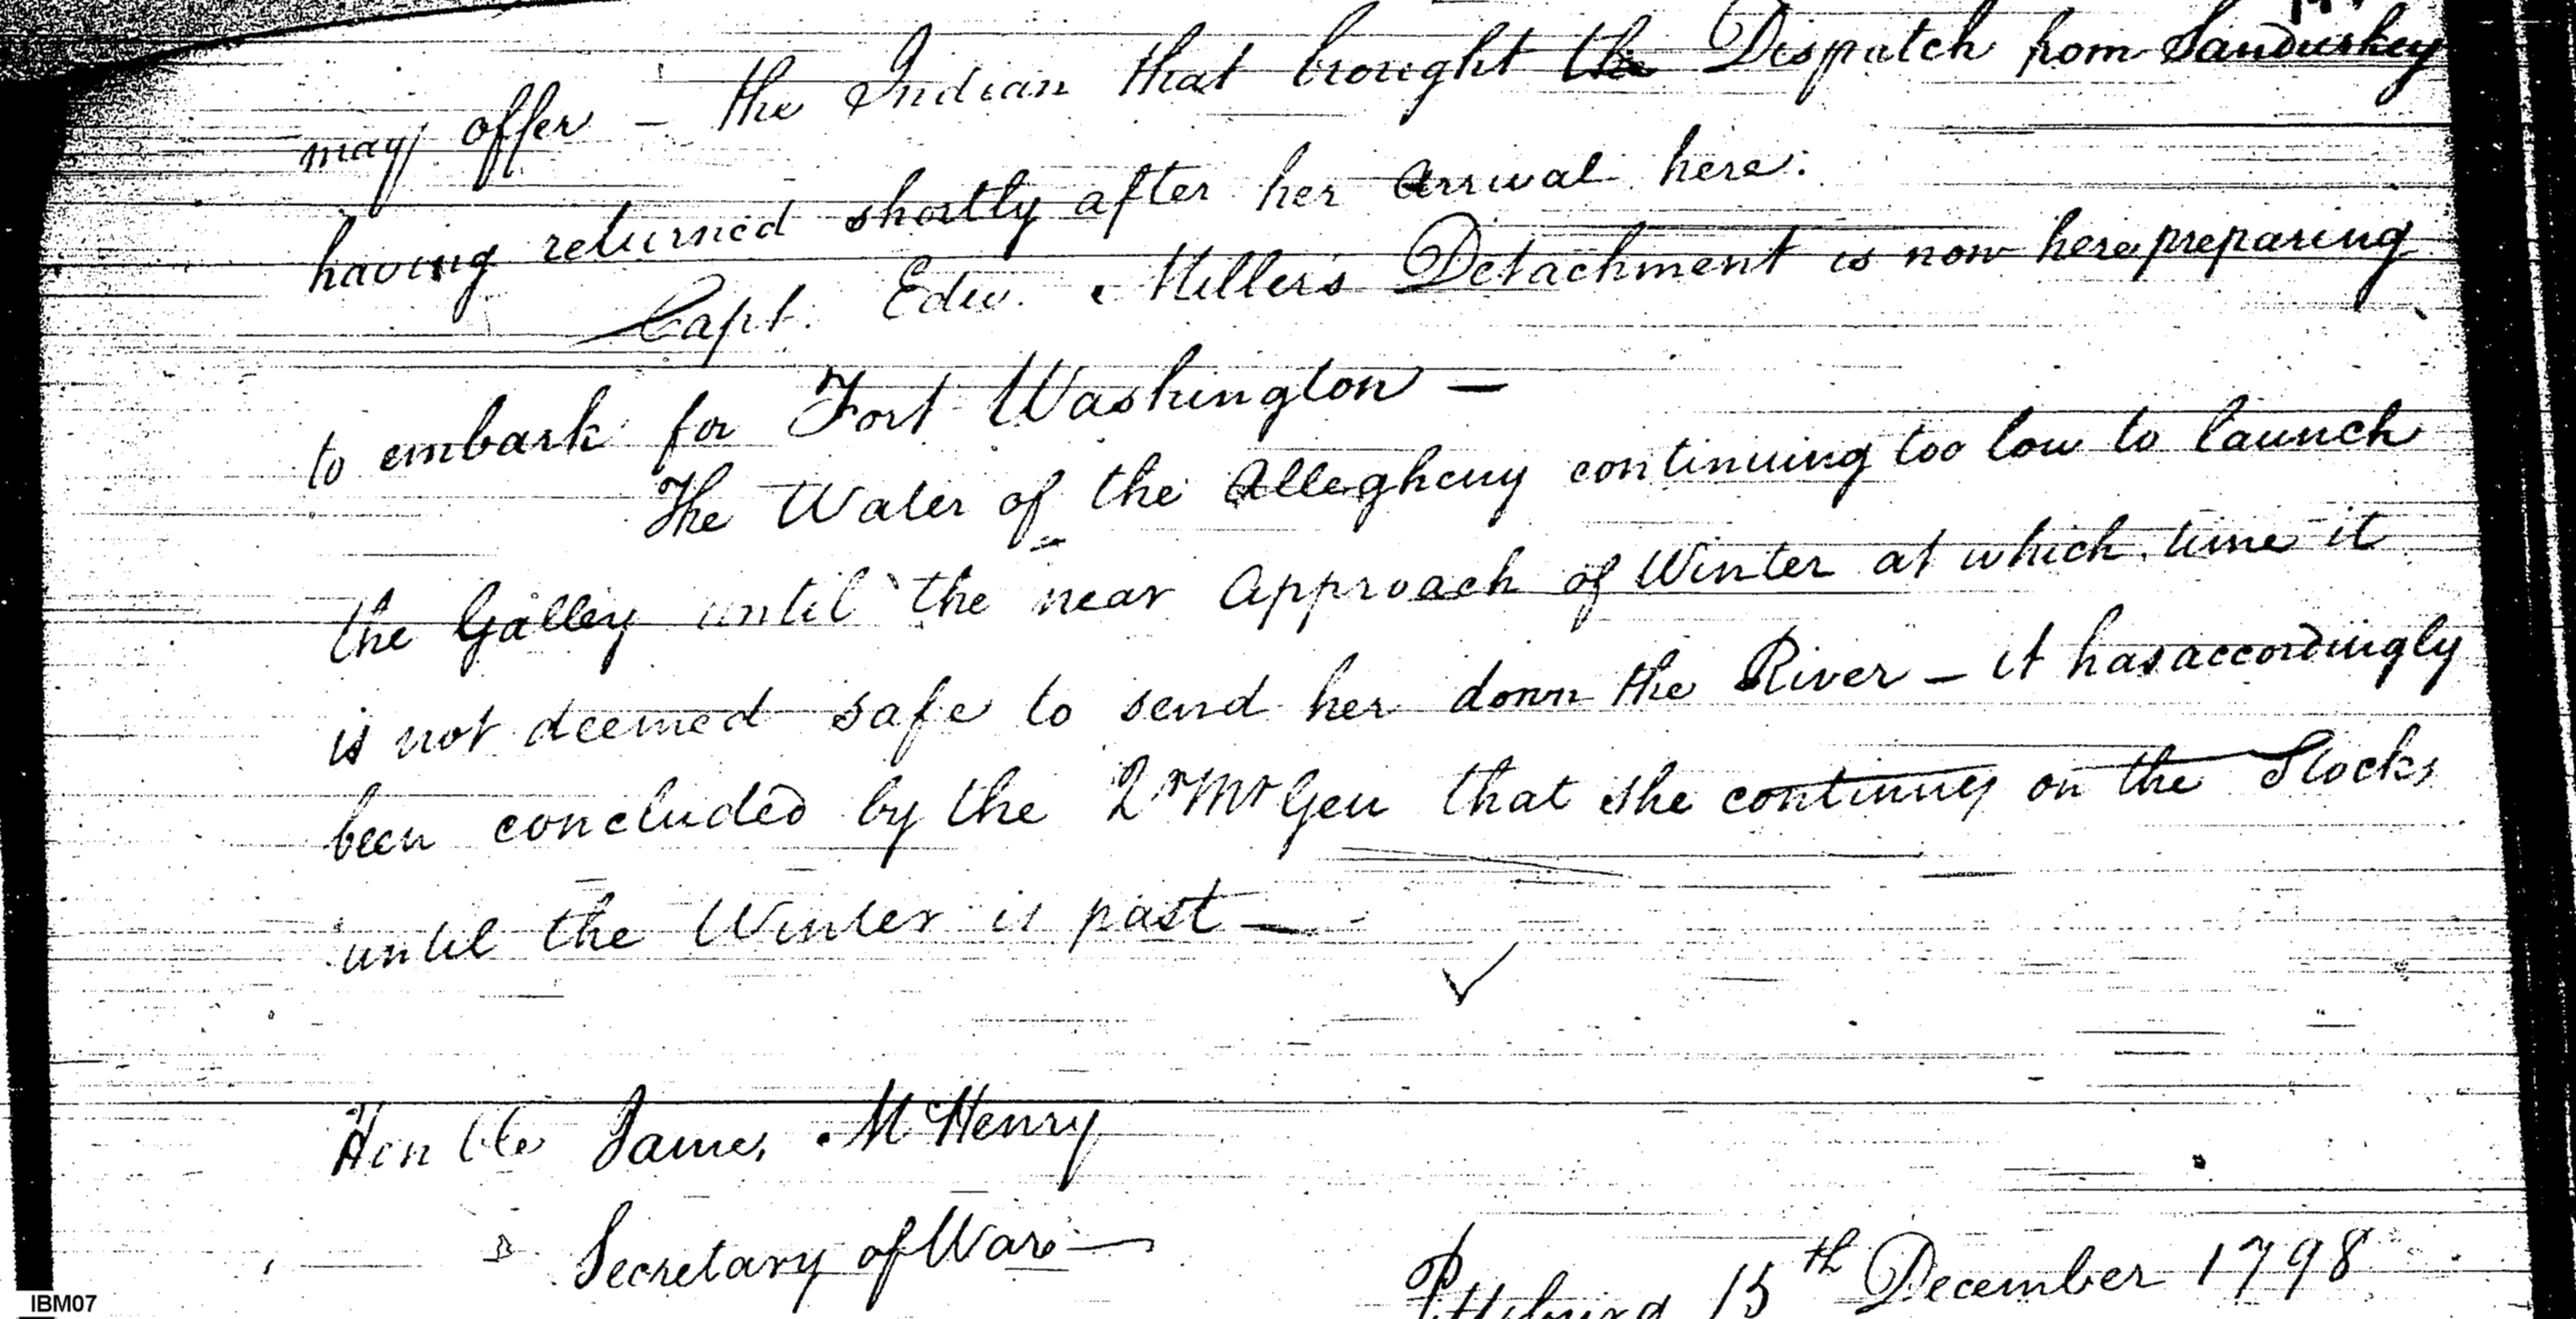 may offer – the Indian that brought the Dispatch from Sanduskey
having returned shortly after her arrival here.
Capt. Edw. Millers Detachment is now here preparing
to embark for Fort Washington —
The Water of the Allegheny continuing too low to launch
the Galley until the near Approach of Winter at which time it
is not deemed safe to send her down the River – it has accordingly
been concluded by the Qr Mr Gen that she continues on the Stocks
until the Winter is past —
Honble James McHenry
Secretary of War —
Pittsburg 15th December 1798
IBM07